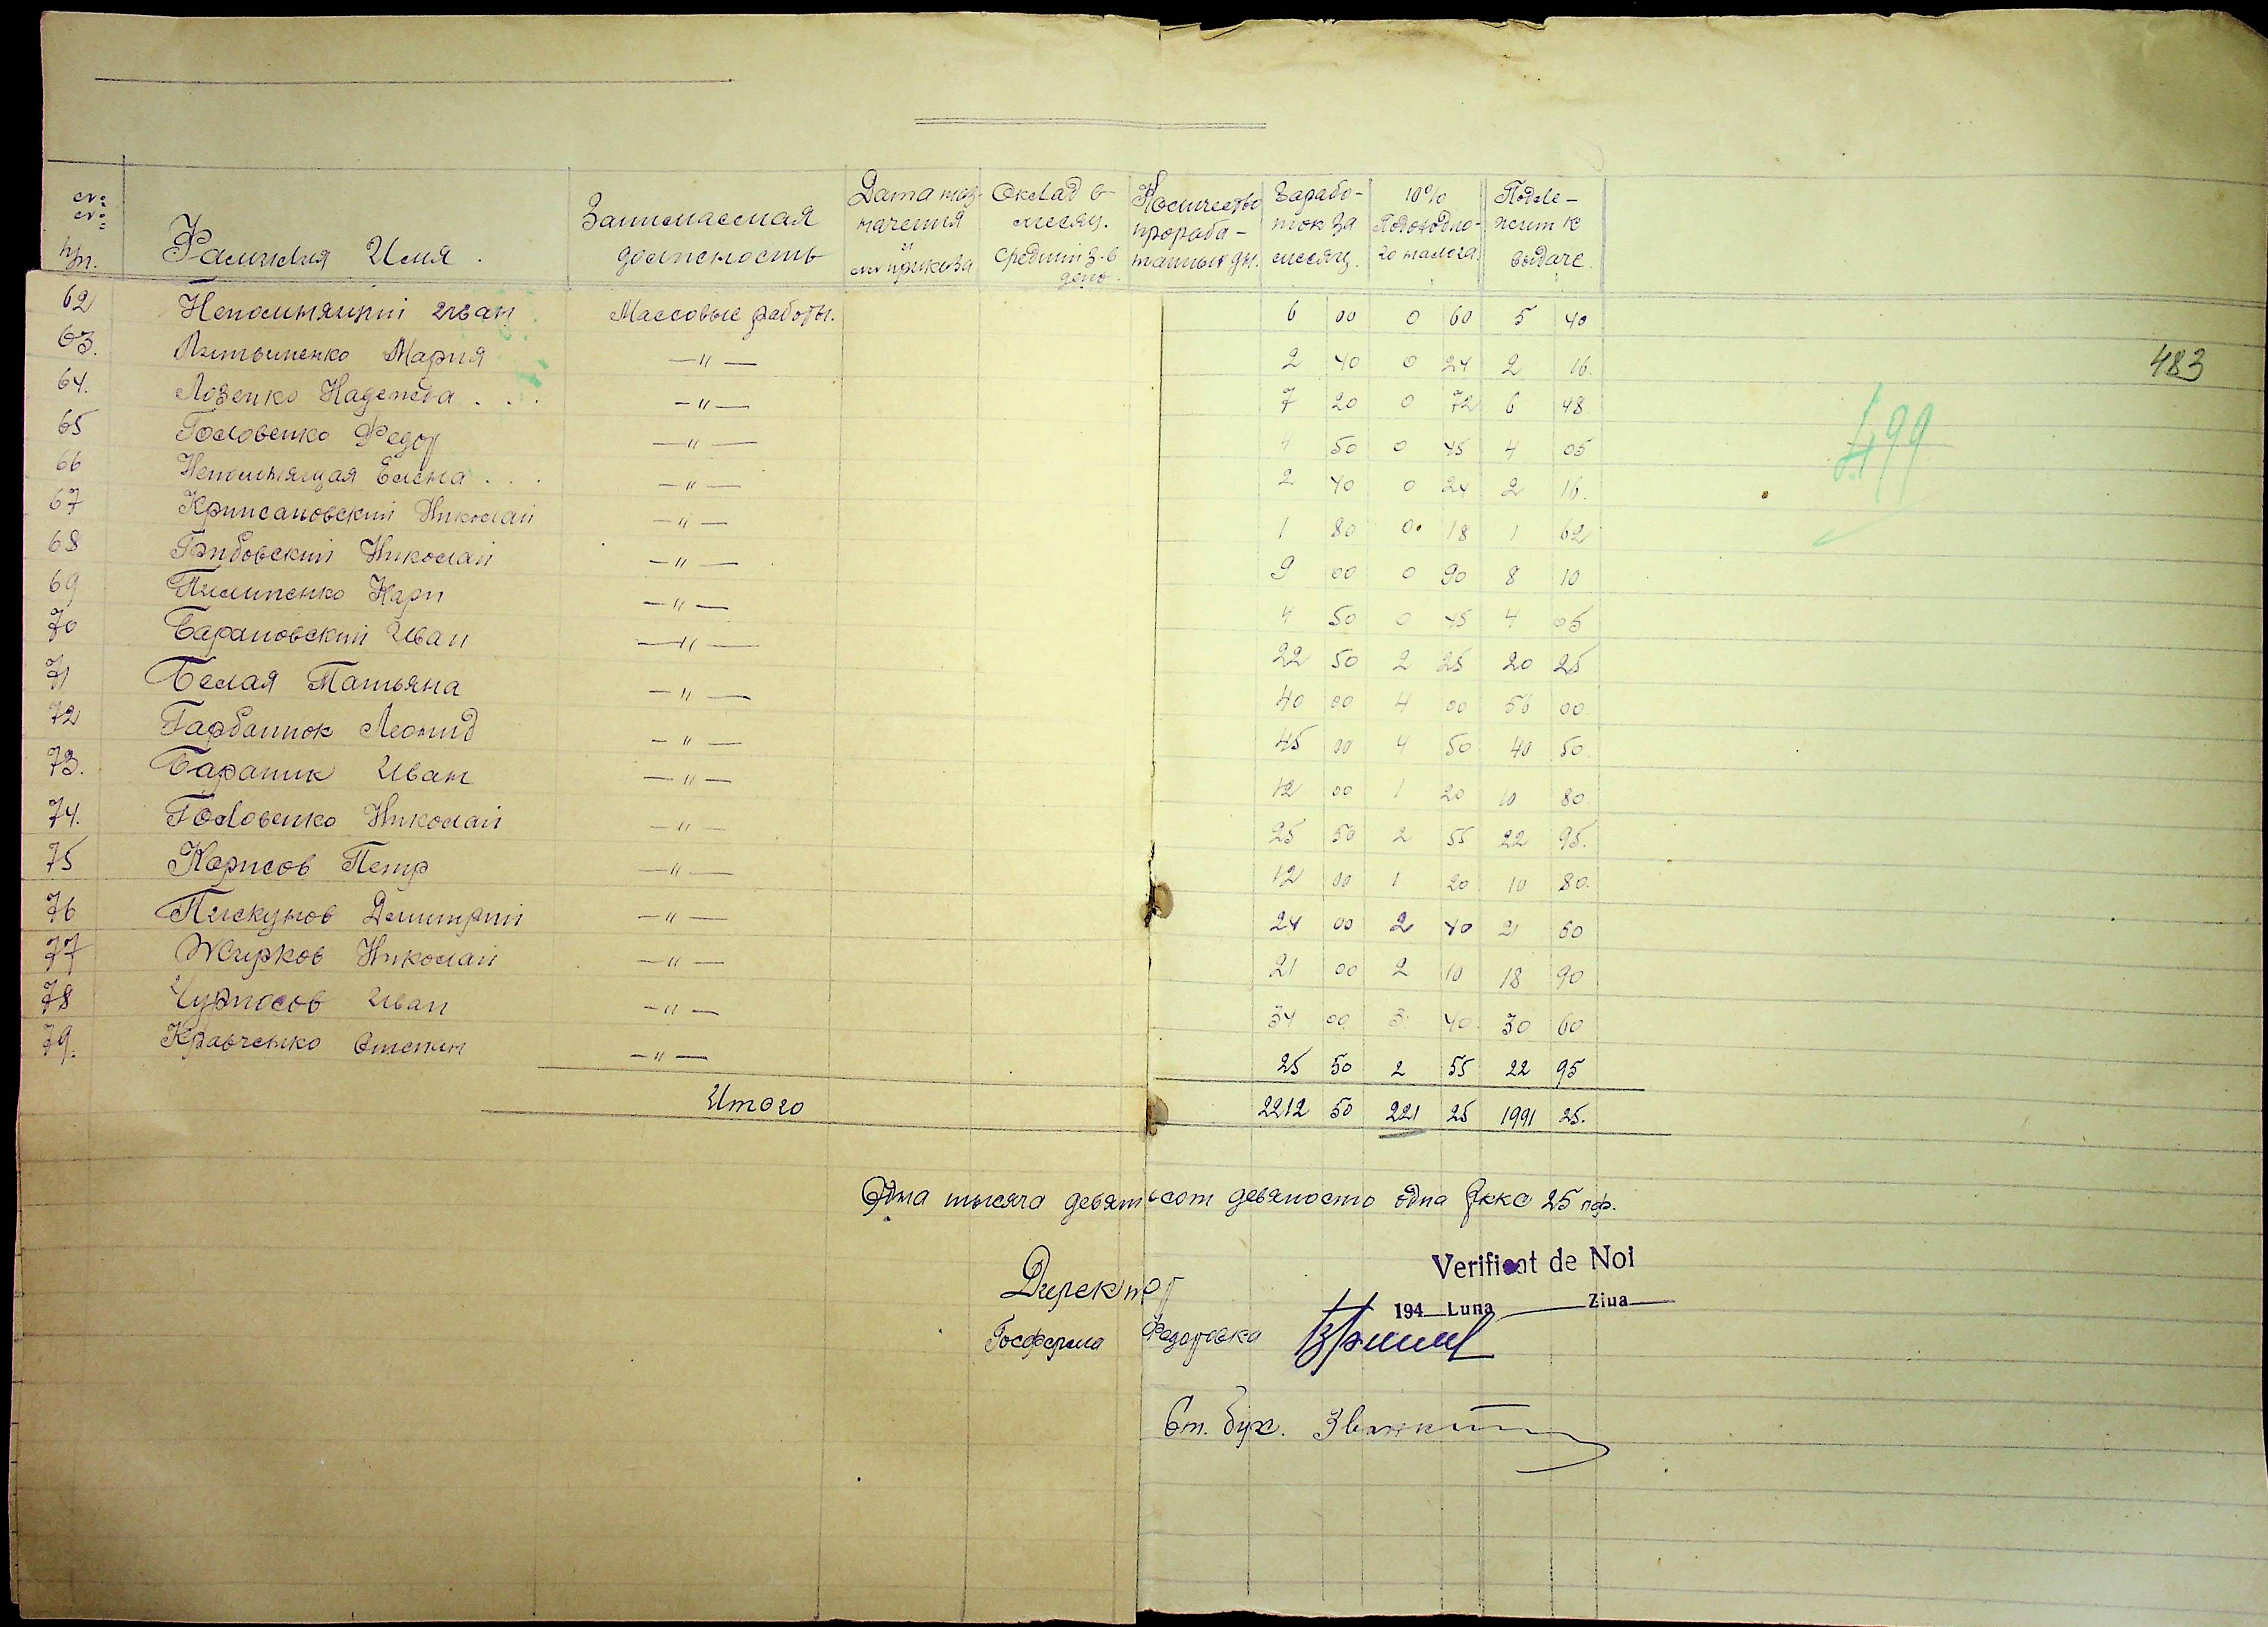 № № п/п. Фамилия Имя. Занимаемая должность Дата наз- начения и № приказа Оклад в месяц. Средний з. в день. Количество прорабо- танных дн. Зарабо- ток за месяц. 10% Подоходно- го налога. Подле- жит к выдаче.
62 Непомнящий Иван Массовые работы. 6 00 0 60 5 40
63. Литвиненко Мария —"— 2 40 0 24 2 16.
483
64. Лозенко Надежда . . . —"— 7 20 0 72 6 48
499
65 Головенко Федор —"— 4 50 0 45 4 05
66 Непомнящая Елена . . . —"— 2 40 0 24 2 16.
67 Николай —"— 1 80 0 18 1 62
68 Грибовский Николай —"— 9 00 0 90 8 10
69 Пилипенко Карп —"— 4 50 0 45 4 05
70 Барановский Иван —"— 22 50 2 25 20 25
71 Белая Татьяна —"— 40 00 4 00 36 00.
72 Леонид —"— 45 00 4 50 40 50.
73. Бараник Иван —"— 12 00 1 20 10 80.
74. Головенко Николай —"— 25 50 2 55 22 95.
75 Петр —"— 12 00 1 20 10 80.
76 Пискунов Димитрий —"— 24 00 2 40 21 60
77 Жирков Николай —"— 21 00 2 10 18 90
78 Иван —"— 34 00 3 40 30 60
79. Кравченко Степан —"— 25 50 2 55 22 95
Итого 2212 50 221 25 1991 25.
Одна тысяча девятьсот девяносто одна Ркка 25 пф.
Verificat de Noi
Директор
194 Luna Ziua
Госферма Федоровка
Ст. бух.